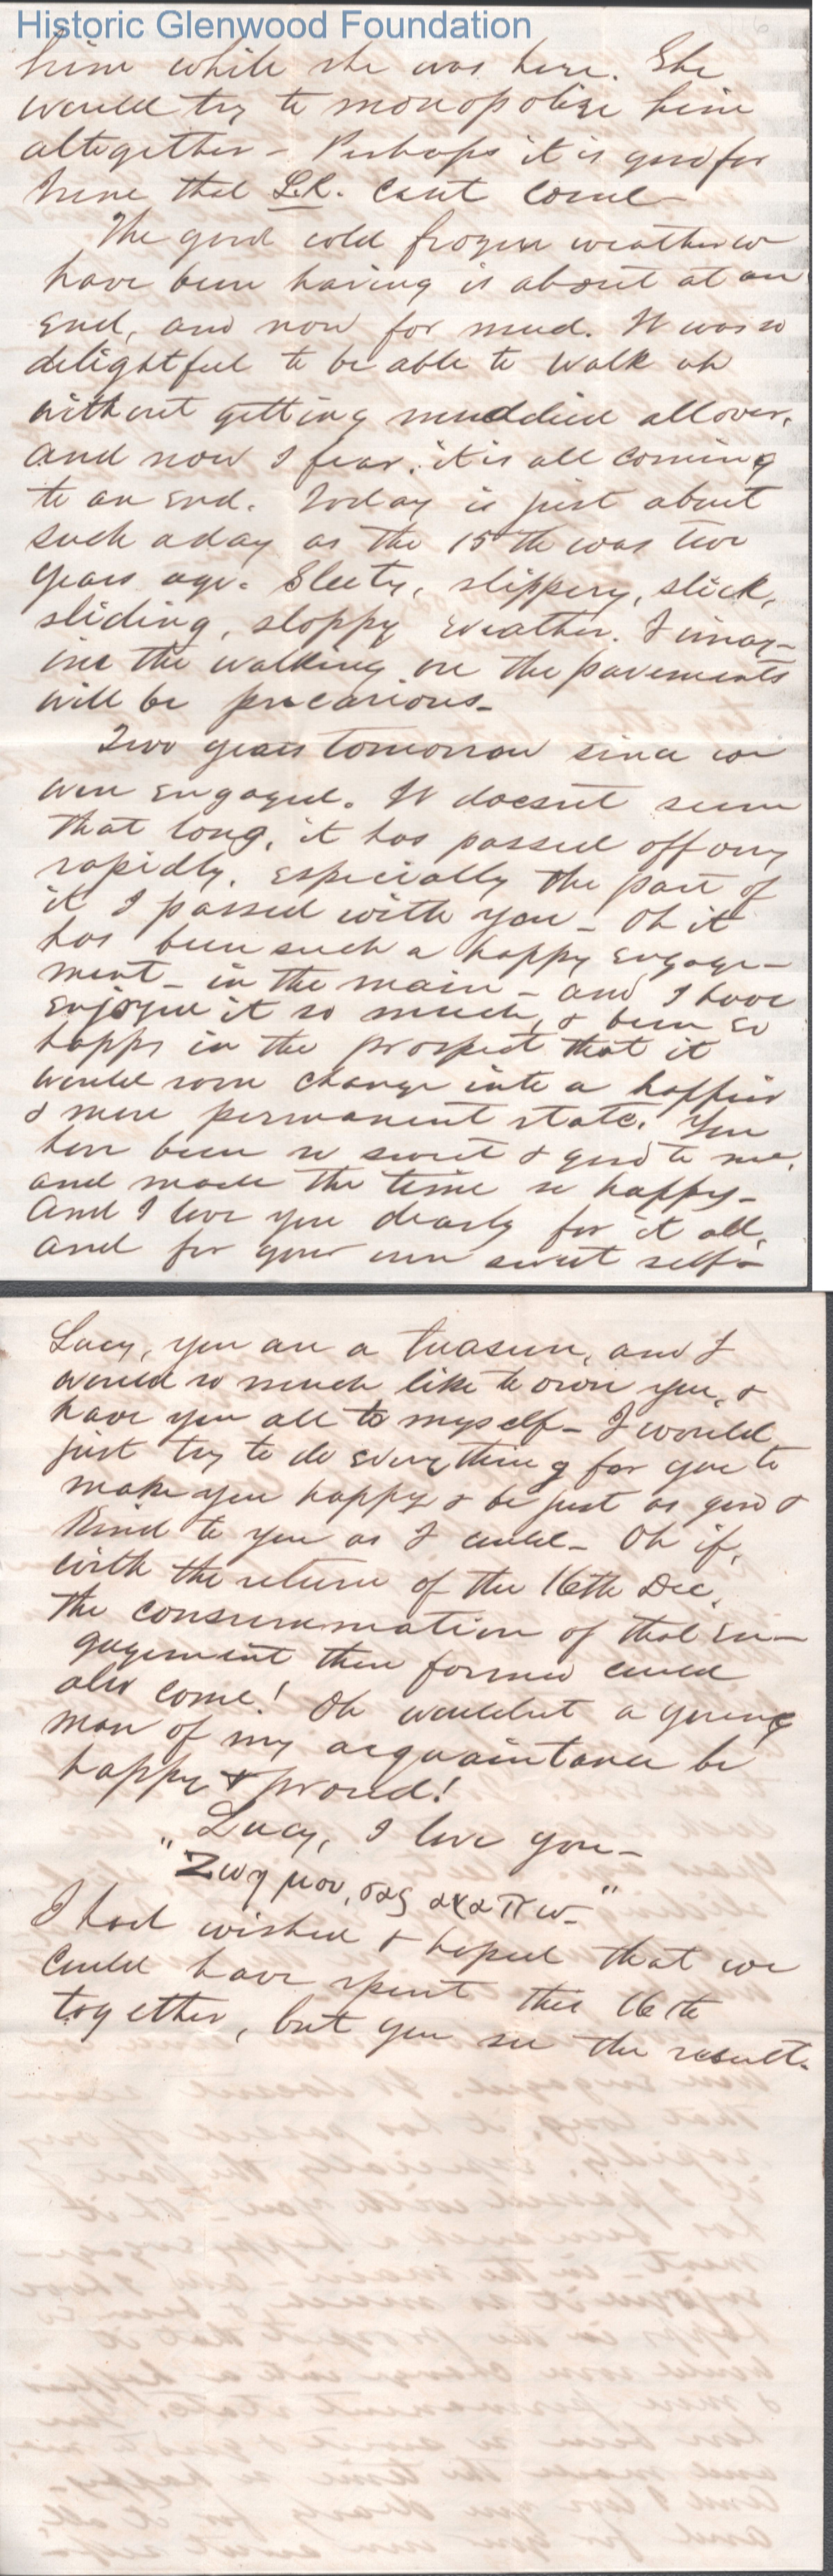 Historic Glenwood Foundation
him while she was here. She
would try to monopolize him
altogether – Perhaps it is good for
him that L.R. cant come –
The good cold frozen weather we
have been having is about at an
end, and now for mud. It was so
delightful to be able to walk oh
without getting muddied all over,
and now I fear, it is all coming
to an end. Today is just about
such a day as the 15th was two
years ago. Sleety, slippery, slick,
sliding, sloppy weather. I imag-
ine the walking on the pavements
will be precarious –
Two years tomorrow since we
were engaged. It doesnt seem
that long, it has passed off very
rapidly, especially the part of
it I passed with you – Oh it
has been such a happy engage-
ment – in the main – and I have
enjoyed it so much, & been so
happy in the prospect that it
would soon change into a happier
& more permanent state. You
have been so sweet & good to me,
and made the time so happy –
And I love you dearly for it all,
and for your own sweet self –
Lucy, you are a treasure, and I
would so much like to own you, &
have you all to myself – I would
just try to do everything for you to
make you happy & be just as good &
kind to you as I could – Oh if,
with the return of the 16th Dec,
the consummation of that en-
gagement then formed could
also come! Oh wouldnt a young
man of my acquaintance be
happy & proud!
Lucy, I love you –
"Ζωη μου, σας αγαπω –"
I had wished & hoped that we
could have spent this 16th
together, but you see the result.